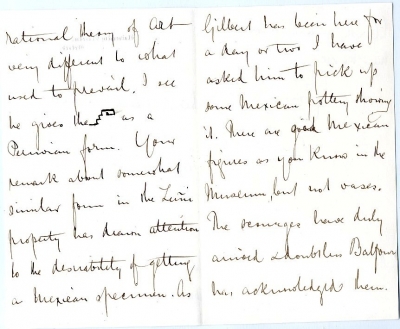 rational theory of Art
very different to what
used to prevail. I see
he gives the as a
Peruvian form. Your
remark about somewhat
similar form in the Zuñi
property has drawn attention
to the desirability of getting
a Mexican specimen. As
Gilbert has been here for
a day or two I have
asked him to pick up
some Mexican pottery showing
it. There are good Mexican
figures as you know in the
Museum, but not vases.
The scourges have duly
arrived & doubtless Balfour
has acknowledged them.